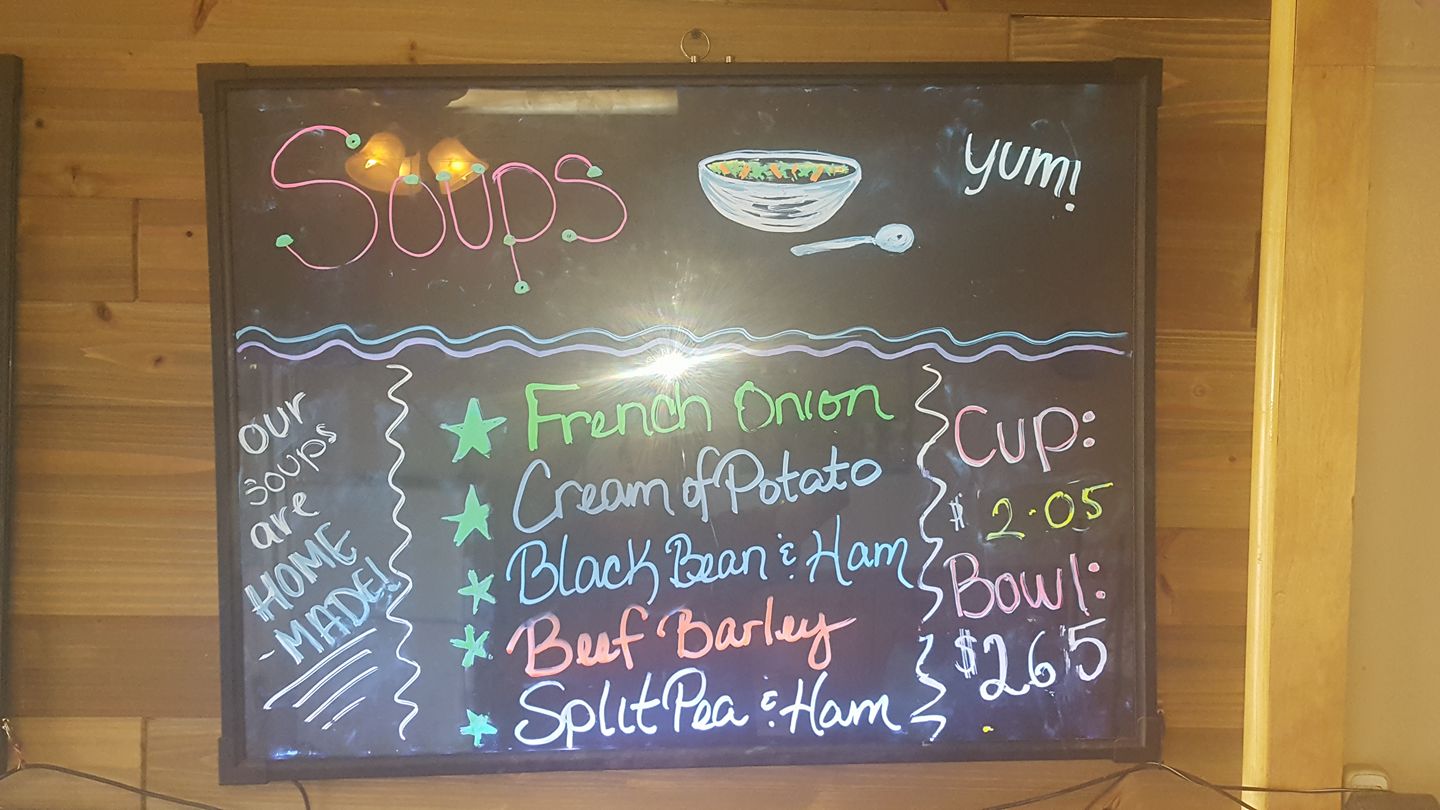 Soups
Yum!
Our
Soups
are
HOME
-MADE!
French Onion
Cream of Potato
Black Bean & Ham
Beef Barley
Split Pea & Ham
Cup:
$ 2.05
Bowl:
$265